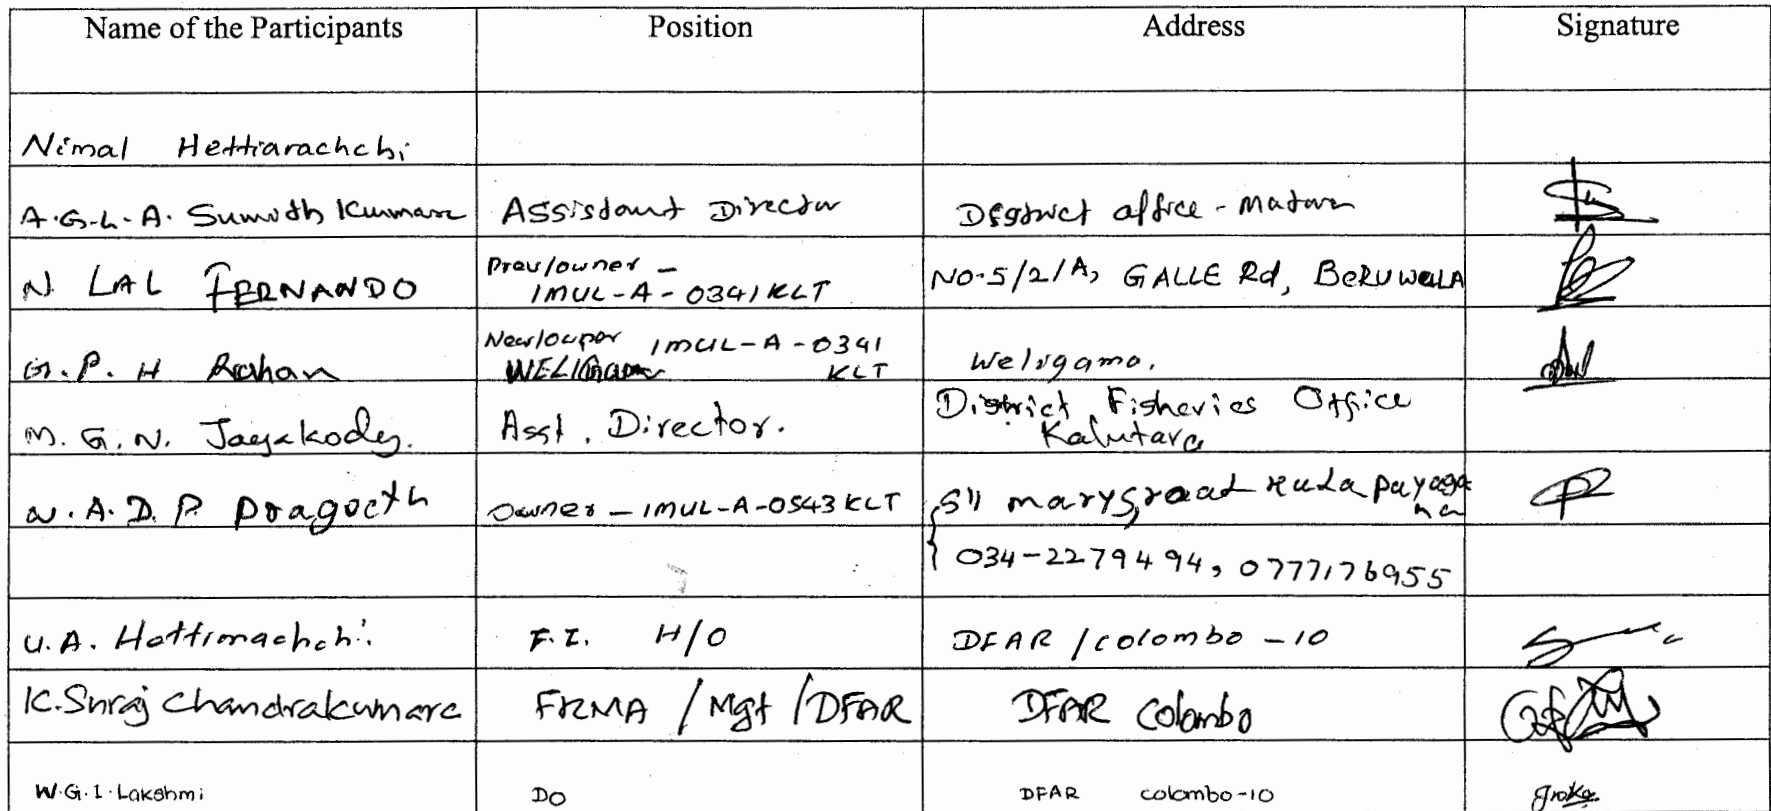 Name of the Participants Position Address Signature
Nimal Hettiarachchi
A.G.L.A. Sumith Kumara Assistant Director District office - Matara
N LAL FERNANDO Prev/owner - IMUL-A-0341KLT NO-5/2/A, GALLE Rd, BERUWALA
G.P.H Rohan IMUL-A-0341 KLT Weligama.
M.G.N. Jayakody. Asst. Director. District Fisheries Office Kalutara
N.A.D.P Owner - IMUL-A-0543KLT
034-2279494, 0777176955
U.A. Hettiarachchi. F.I. H/O DFAR / Colombo - 10
K.Suraj Chandrakumara FRMA / Mgt / DFAR DFAR Colombo
W.G.I.Lakshmi DO DFAR colombo-10